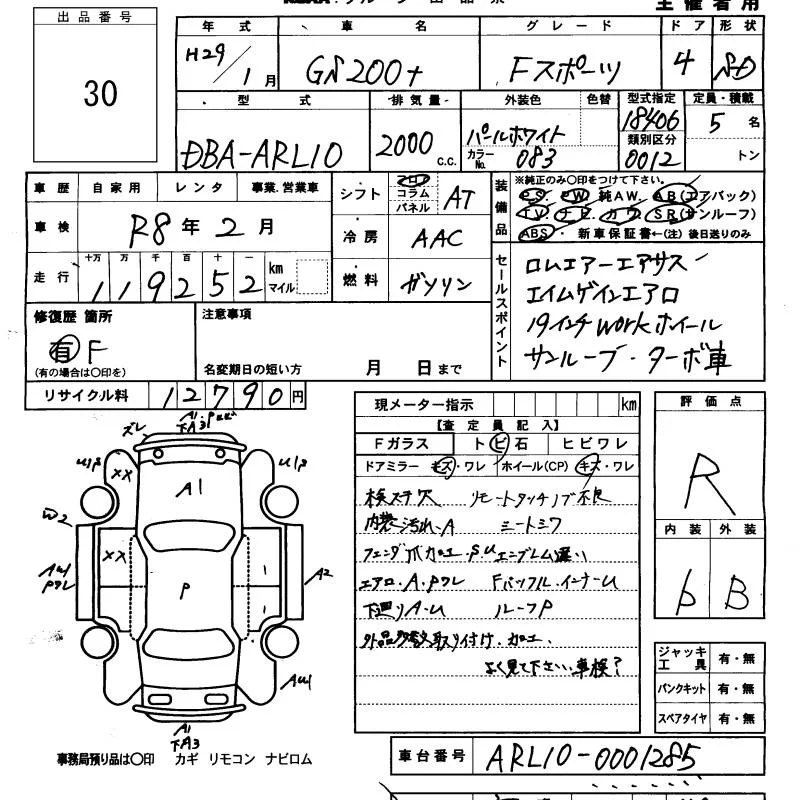 主催者用
出品番号
30
年式 車名 グレード ドア 形状
H29/1月 GS200t Fスポーツ 4 SD
型式 排気量 外装色 色替 型式指定 定員・積載
DBA-ARL10 2000 c.c. パールホワイト 18406 5名
カラーNo. 083 類別区分 0012 トン
車歴 自家用 レンタ 事業.営業車
車検 R8年2月
走行 十万 万 千 百 十 一 km マイル
119252
シフト フロア コラム パネル AT
冷房 AAC
燃料 ガソリン
装備品 ※純正のみ○印をつけて下さい。
PS. PW. 純AW. AB(エアバック)
TV. ナビ. カワ. SR(サンルーフ)
ABS. 新車保証書←(注)後日送りのみ
セールスポイント
ロムエアーエアサス
エイムゲインエアロ
19インチworkホイール
サンルーブ・ターボ車
修復歴 箇所
有 F
(有の場合は○印を)
注意事項
名変期日の短い方 月 日まで
リサイクル料 12790円
現メーター指示 km
【査定員記入】
Fガラス トビ石 ヒビワレ
ドアミラー キズ・ワレ ホイール(CP) キズ・ワレ
検ステ欠 リモートタッチノブ不良
内装汚れ・A シートシワ
フェンダ爪加工・P.U エンブレム違い
エアロ・A.Pワレ Fバッフル・インナーU
下廻りA.U ルーフP
外品多数取り付け.加工.
よく見て下さい.車検?
評価点
R
内装 外装
b B
ジャッキ工具 有・無
パンクキット 有・無
スペアタイヤ 有・無
ズレ
A1
下A3
U1P
U1P
××
A1
W2
××
AU1
Pワレ
P
A2
AU1
A1
下A3
事務局預り品は○印 カギ リモコン ナビロム
車台番号 ARL10-0001285